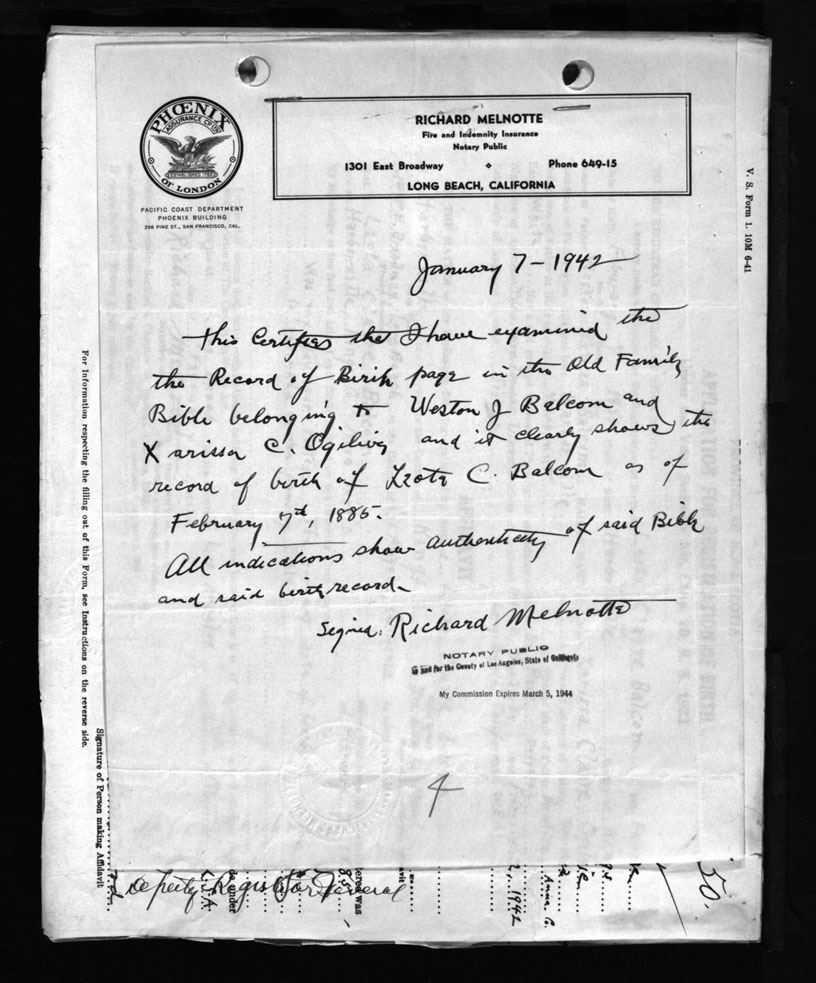 PHŒNIX
ASSURANCE CO LTD
ESTABLISHED 1782
OF LONDON
PACIFIC COAST DEPARTMENT
PHOENIX BUILDING
356 PINE ST., SAN FRANCISCO, CAL.
RICHARD MELNOTTE
Fire and Indemnity Insurance
Notary Public
1301 East Broadway
Phone 649-15
LONG BEACH, CALIFORNIA
V. S. Form 1. 10M 6-41
January 7 - 1942
This Certifies that I have examined the
the Record of Birth page in the Old Family
Bible belonging to Weston J Balcom and
X arissa C. Ogilivy and it clearly shows the
record of birth of Leota C. Balcom as of
February 7th, 1885.
All indications show authenticity of said Bible
and said birth record.
Signed: Richard Melnotte
NOTARY PUBLIC
in and for the County of Los Angeles, State of California
My Commission Expires March 5, 1944
4
For Information respecting the filling out of this Form, see Instructions on the reverse side.
Signature of Person making Affidavit
Deputy Registrar General
de under
tered was
2, 1942
Anna C.
50.